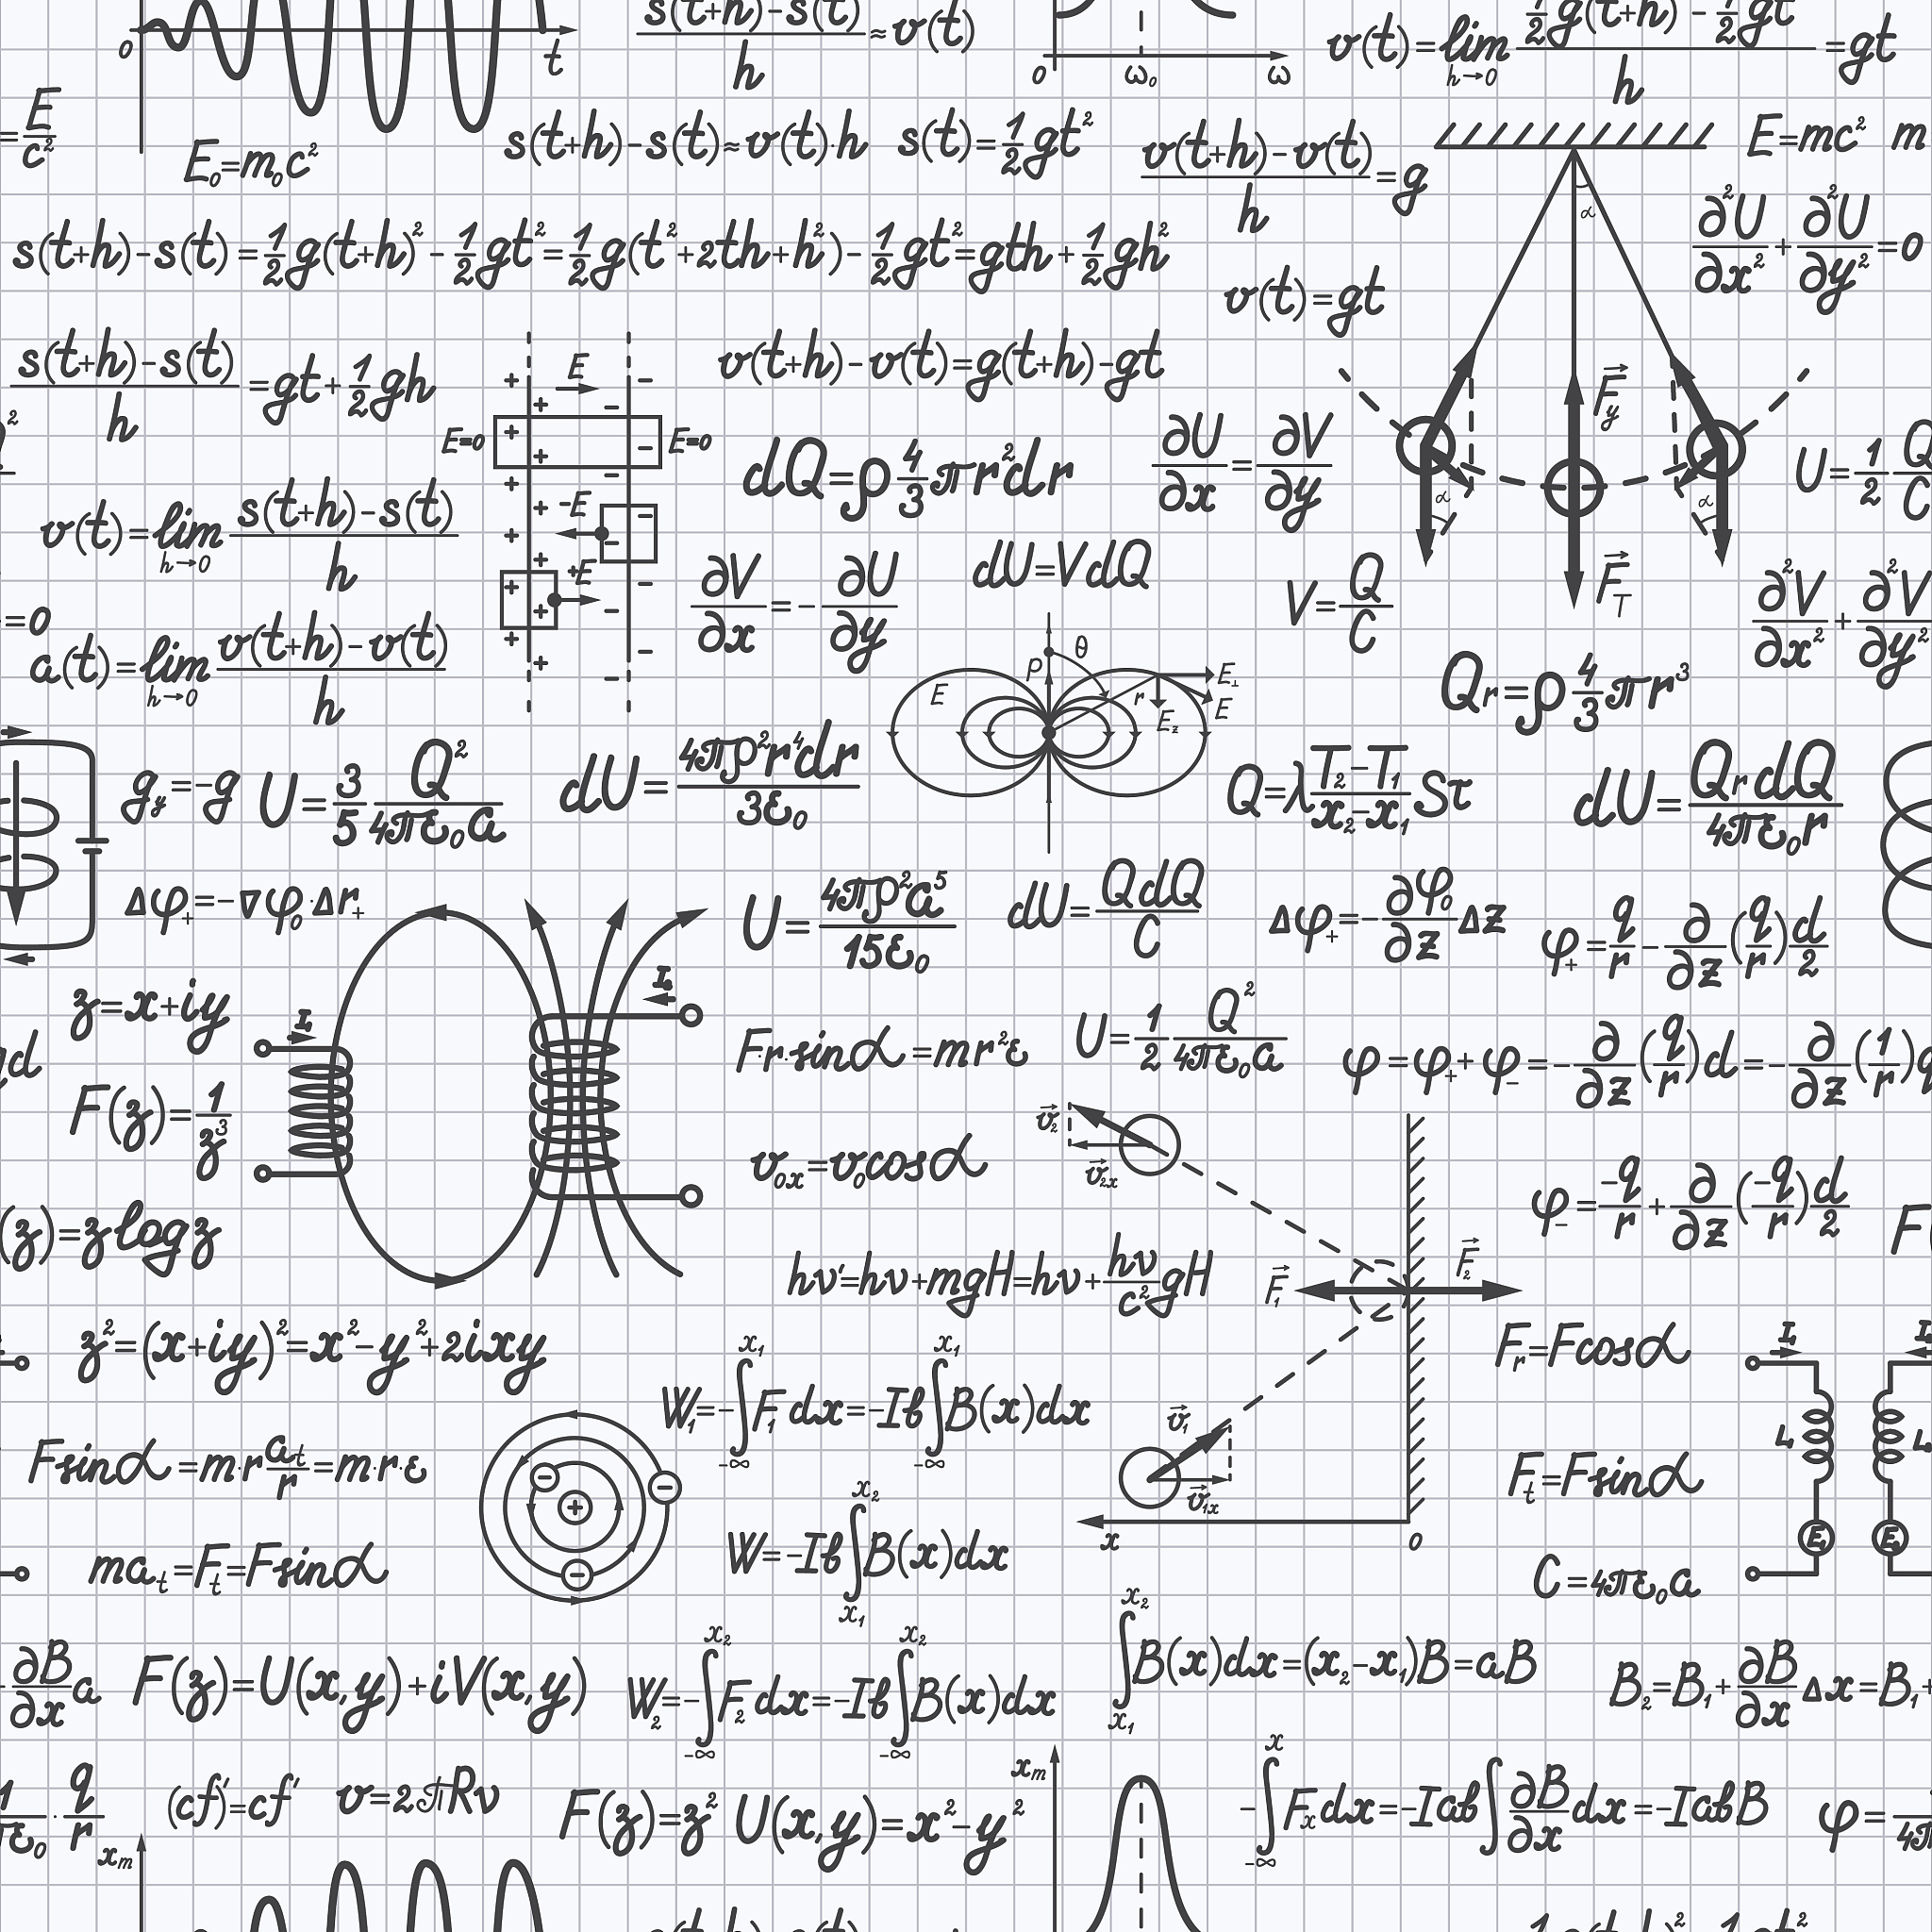 (s(t+h)-s(t))/h ≈ v(t)
v(t) = lim h→0 (½g(t+h) - ½gt)/h = gt
0 t
0 ω₀ ω
= E/c²
E₀=m₀c²
s(t+h)-s(t)≈v(t)·h
s(t)=½gt²
(v(t+h)-v(t))/h = g
E=mc² m
s(t+h)-s(t)=½g(t+h)²-½gt²=½g(t²+2th+h²)-½gt²=gth+½gh²
v(t)=gt
∂²U/∂x²+∂²U/∂y²=0
α
(s(t+h)-s(t))/h = gt+½gh
v(t+h)-v(t)=g(t+h)-gt
E
E=0 E=0
-E
+E
F⃗y
α α
F⃗T
dQ=ρ 4/3 πr²dr
∂U/∂x=∂V/∂y
U=½ Q/C
v(t)=lim h→0 (s(t+h)-s(t))/h
∂V/∂x=-∂U/∂y
dU=VdQ
V=Q/C
∂²V/∂x²+∂²V/∂y²
=0
a(t)=lim h→0 (v(t+h)-v(t))/h
p θ
E r E⊥ E Ez
Qr=ρ 4/3 πr³
gy=-g
U=3/5 Q²/4πε₀a
dU=4πρ²r⁴dr/3ε₀
Q=λ (T₂-T₁)/(x₂-x₁) Sτ
dU=QrdQ/4πε₀r
Δφ₊=-∇φ₀·Δr₊
U=4πρ²a⁵/15ε₀
dU=QdQ/C
Δφ₊=-∂φ₀/∂z Δz
φ₊=q/r-∂/∂z(q/r)d/2
z=x+iy
I₁
Fr·sinα=mr²ε
U=½ Q²/4πε₀a
φ=φ₊+φ₋=-∂/∂z(q/r)d=-∂/∂z(1/r)q
d
F(z)=1/z³
v⃗₂
v⃗₂ₓ
v₀ₓ=v₀cosα
φ₋=-q/r+∂/∂z(-q/r)d/2
F(
(z)=zlogz
hν'=hν+mgH=hν+hν/c² gH
F⃗₁ F⃗₂
z²=(x+iy)²=x²-y²+2ixy
Fr=Fcosα
I₁
W₁=-∫-∞^x₁ F₁dx=-Ib∫-∞^x₁ B(x)dx
v⃗₁
v⃗₁ₓ
Fsinα=m·r aₜ/r=m·r·ε
Fₜ=Fsinα
W=-Ib∫x₁^x₂ B(x)dx
x 0
E₁
maₜ=Fₜ=Fsinα
C=4πε₀a
∂B/∂x a
F(z)=U(x,y)+iV(x,y)
W₂=-∫-∞^x₂ F₂dx=-Ib∫-∞^x₂ B(x)dx
∫x₁^x₂ B(x)dx=(x₂-x₁)B=aB
B₂=B₁+∂B/∂x Δx=B₁+
· q/r
(cf)'=cf'
v=2πRν
F(z)=z²
U(x,y)=x²-y²
xm
-∫-∞^x Fₓdx=-Iab∫∂B/∂x dx=-IabB
φ=
xm